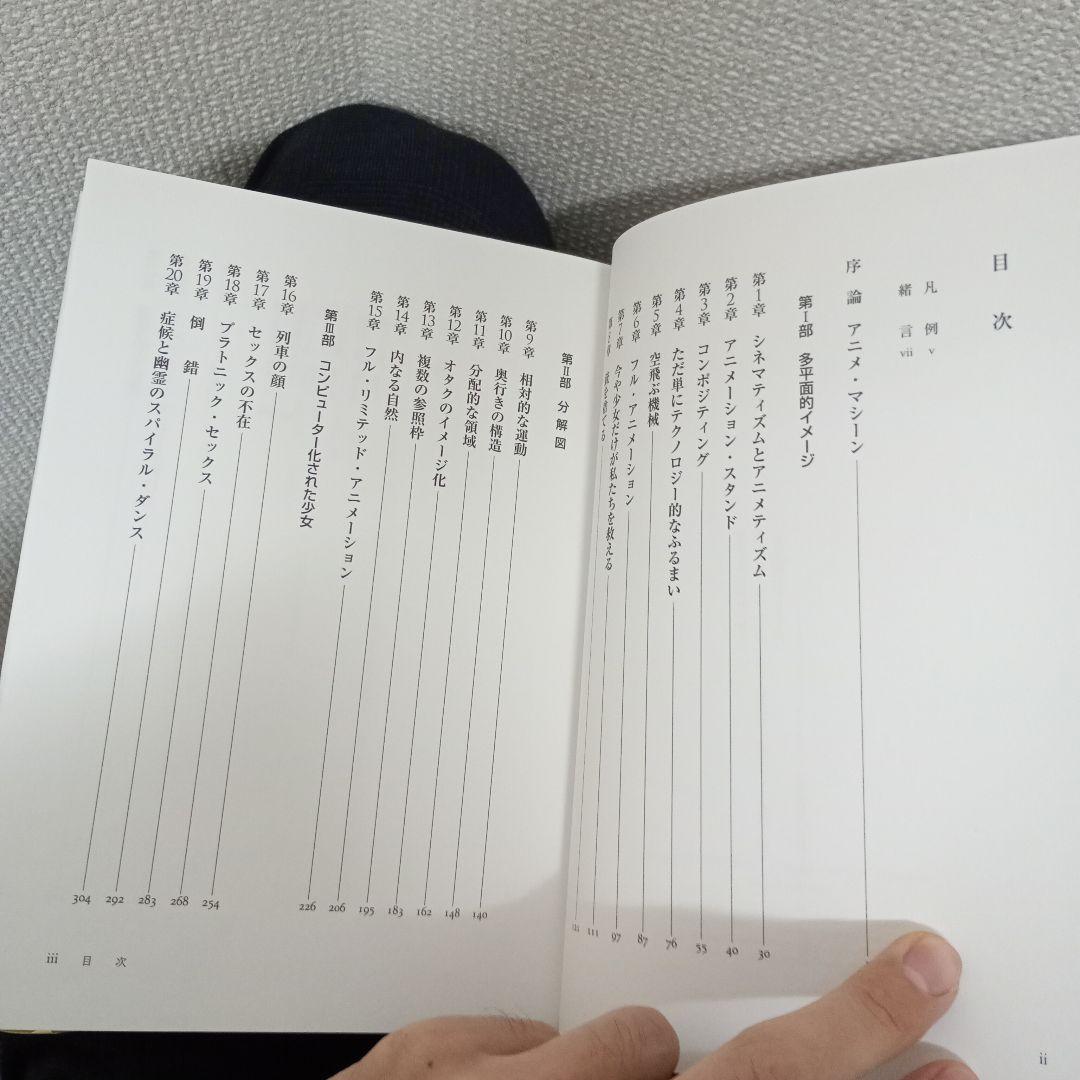 目次
凡例 v
緒言 vii
序論 アニメ・マシーン
第Ⅰ部 多平面的イメージ
第1章 シネマティズムとアニメティズム 30
第2章 アニメーション・スタンド 40
第3章 コンポジティング 55
第4章 ただ単にテクノロジー的なふるまい 76
第5章 空飛ぶ機械 87
第6章 フル・アニメーション 97
第7章 今や少女だけが私たちを救える 111
を捨てる 121
ii
第Ⅱ部 分解図
第9章 相対的な運動 140
第10章 奥行きの構造 148
第11章 分配的な領域 162
第12章 オタクのイメージ化 183
第13章 複数の参照枠 195
第14章 内なる自然 206
第15章 フル・リミテッド・アニメーション 226
第Ⅲ部 コンピューター化された少女
第16章 列車の顔 254
第17章 セックスの不在 268
第18章 プラトニック・セックス 283
第19章 倒錯 292
第20章 症候と幽霊のスパイラル・ダンス 304
iii 目次